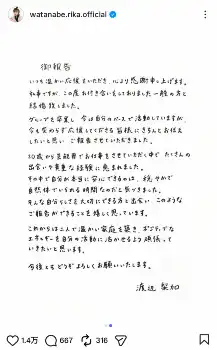 watanabe.rika.official
御報告
いつも温かい応援をいただき、心より感謝申し上げます。
私事ですが、この度お付き合いをしておりました一般の方と
結婚致しました。
グループを卒業し、今は自分のペースで活動していますが、
今も変わらず応援してくださる皆様にきちんとお伝え
したいと思い、ご報告させていただきました。
10歳から芸能界でお仕事をさせていただく中で、たくさんの
出会いや貴重な経験に恵まれました。
その中で自分が本当に安心できるのは、穏やかで
自然体でいられる時間なのだと気づきました。
そんな自分らしさを大切にできる方と出会い、このような
ご報告ができることを嬉しく思っています。
これからは二人で温かい家庭を築き、ポジティブな
エネルギーを自分の活動に活かせるよう頑張って
いきたいと思います。
今後ともどうぞよろしくお願いいたします。
渡辺梨加
1.4万 667 316